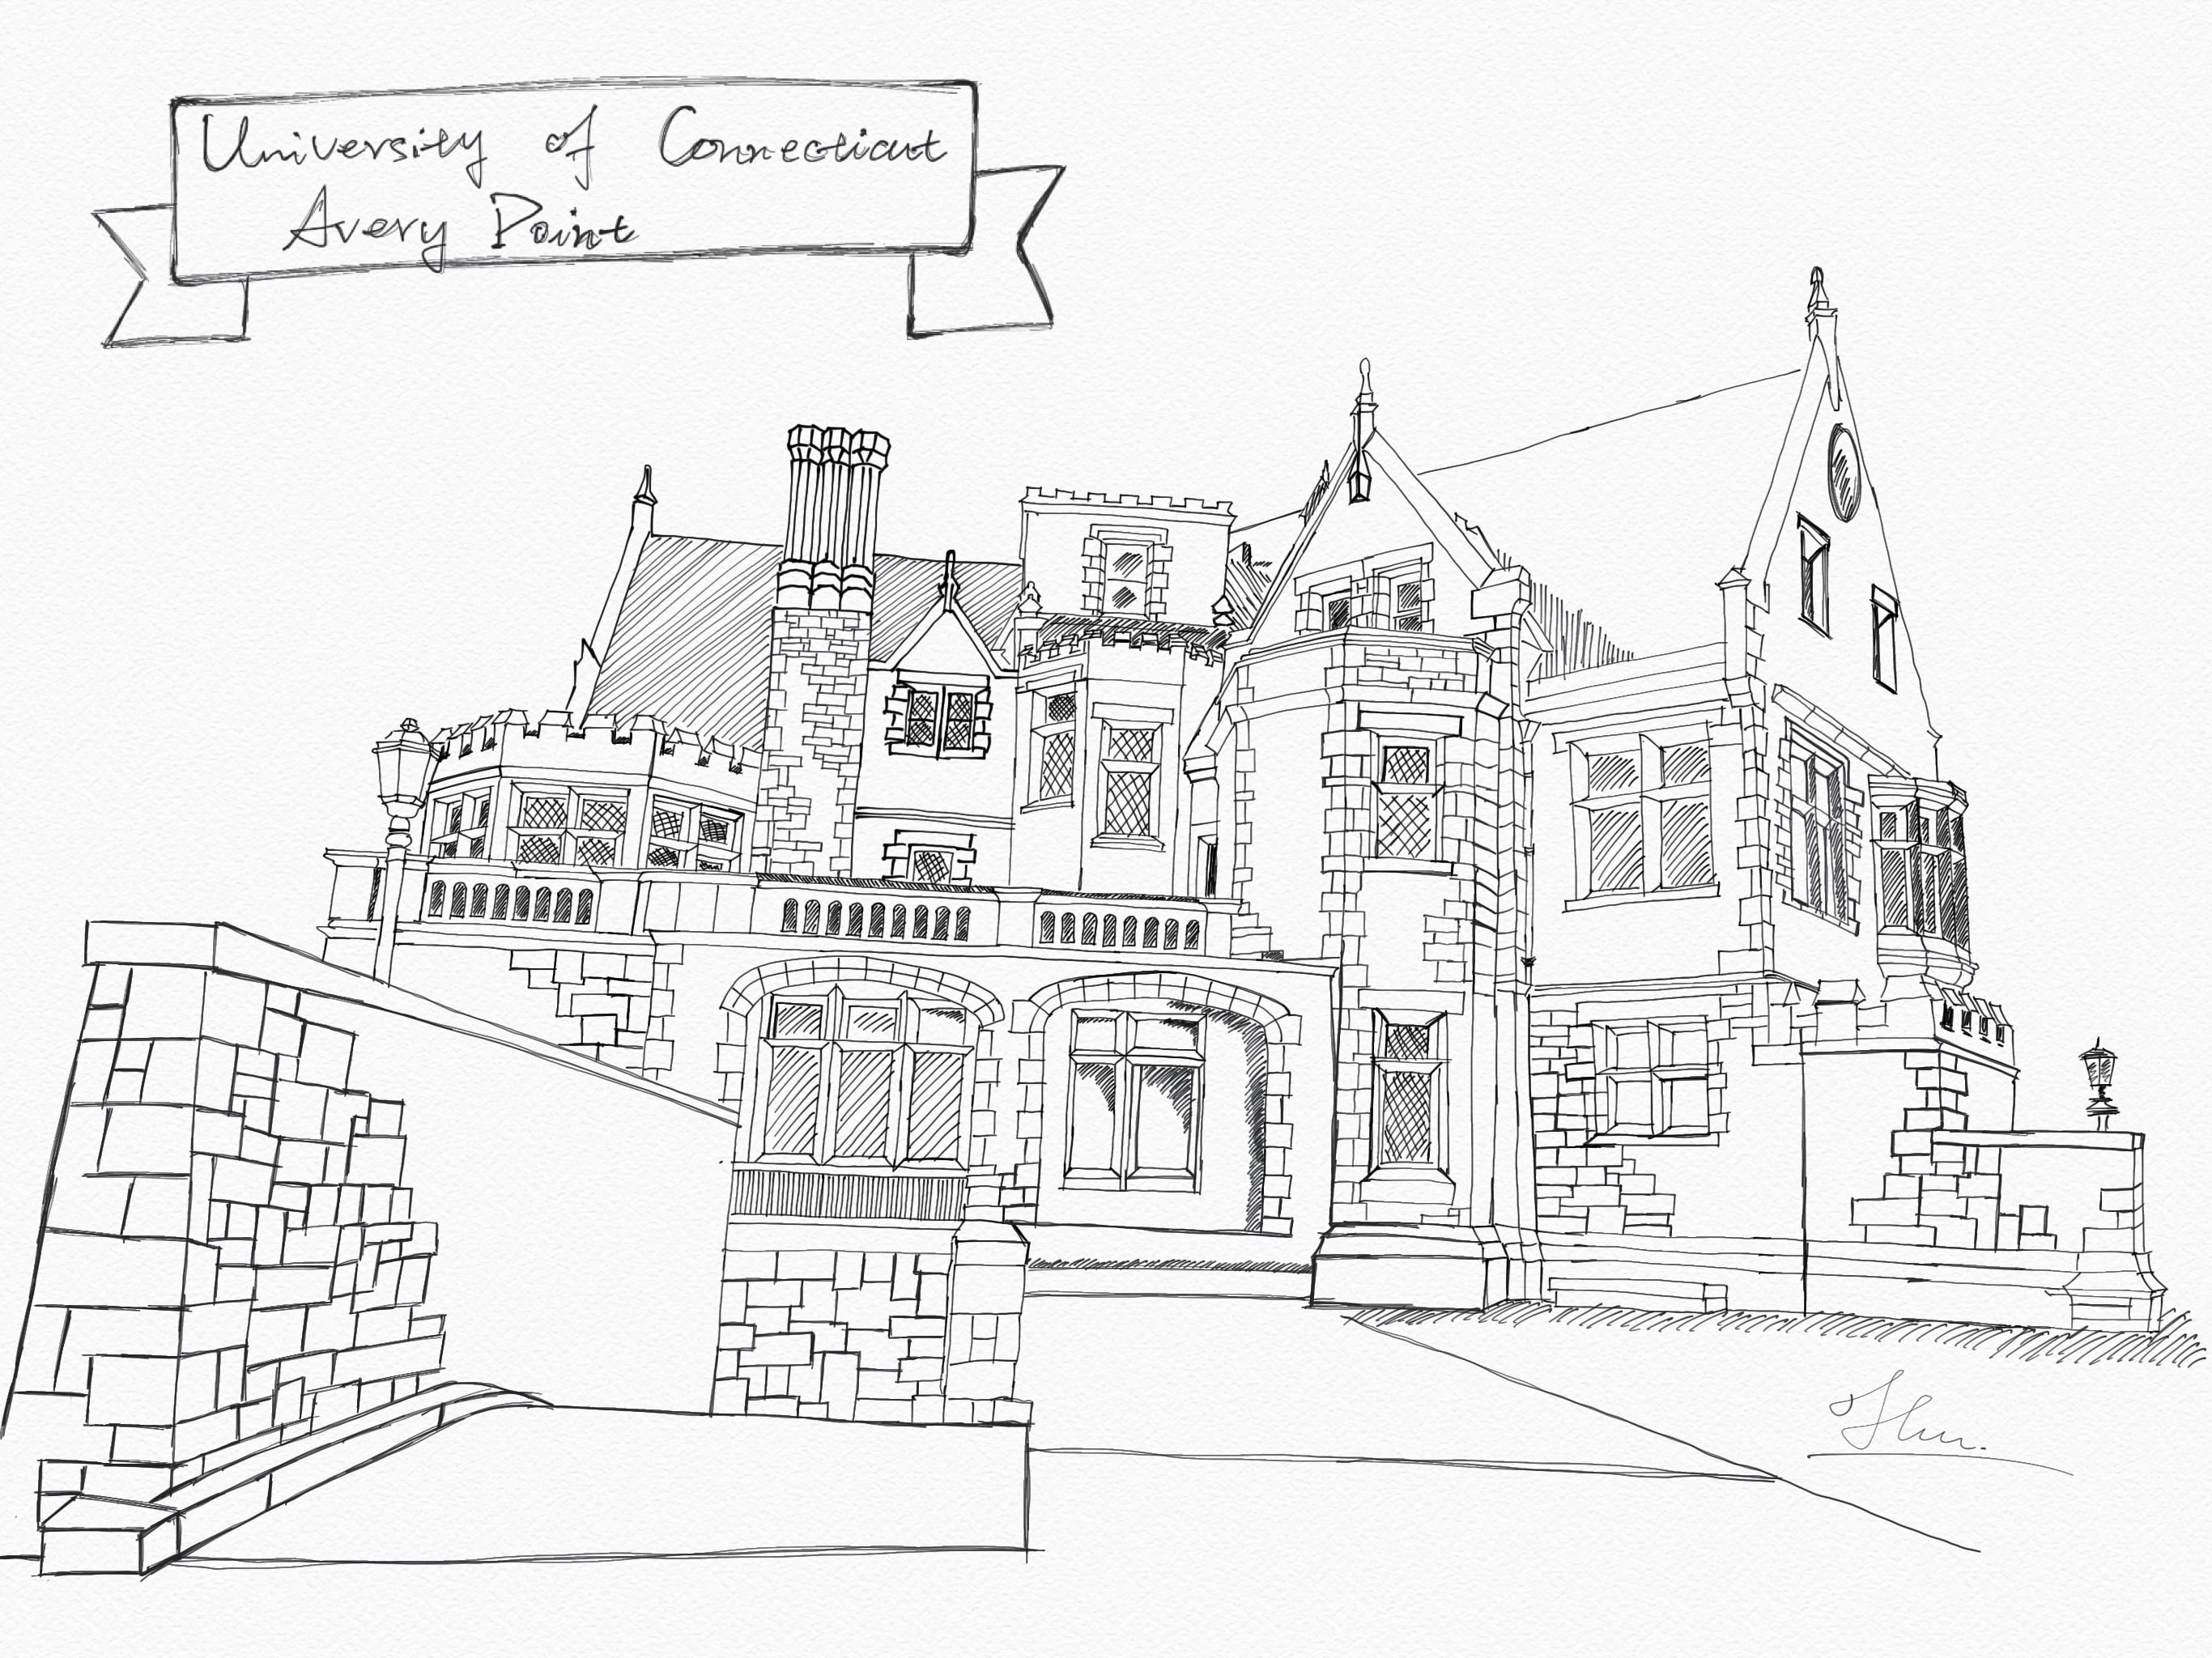 University of Connecticut
Avery Point